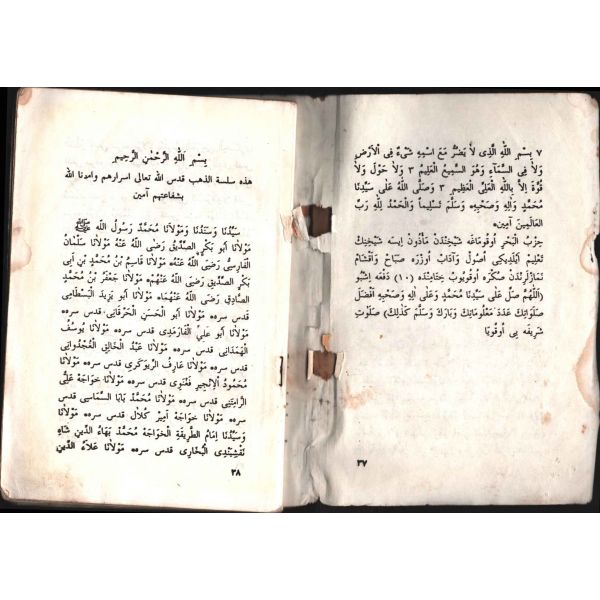 ٧ بِسْمِ اللّٰهِ الَّذِى لَا يَضُرُّ مَعَ اسْمِهِ شَىْءٌ فِى الْاَرْضِ
وَلَا فِى السَّمَاءِ وَهُوَ السَّمِيعُ الْعَلِيمُ ٣ وَلَا حَوْلَ وَلَا
قُوَّةَ اِلَّا بِاللّٰهِ الْعَلِىِّ الْعَظِيمِ ٣ وَصَلَّى اللّٰهُ عَلَى سَيِّدِنَا
مُحَمَّدٍ وَاٰلِهِ وَصَحْبِهِ وَسَلَّمَ تَسْلِيماً وَالْحَمْدُ لِلّٰهِ رَبِّ
الْعَالَمِينَ آمِين.
حِزْبُ الْبَحْرِ اوقُومَاغَه شَيْخِنْدَنْ مَأْذُونْ اِيسَه شَيْخِنِكْ
تَعْلِيمْ اَيْلَدِيكِى اُصُولْ وَآدَابْ اُوزْرَه صَبَاحْ وَاَقْشَامْ
نَمَازْلَرِنْدَنْ صُكْرَه اوقُويُوبْ خِتَامِنْدَه (١٠) دَفْعَه اِشْبُو
(اَللّٰهُمَّ صَلِّ عَلَى سَيِّدِنَا مُحَمَّدٍ وَعَلَى اٰلِهِ وَصَحْبِهِ اَفْضَلَ
صَلَوَاتِكَ عَدَدَ مَعْلُومَاتِكَ وَبَارِكْ وَسَلِّمْ كَذٰلِكَ) صَلَوٰتِ
شَرِيفَه يِى اوقُويَا
٣٧
بِسْمِ اللّٰهِ الرَّحْمٰنِ الرَّحِيمِ
هذه سلسة الذهب قدس الله تعالى اسرارهم وامدنا الله
بشفاعتهم آمين
سَيِّدُنَا وَسَنَدُنَا وَمَوْلَانَا مُحَمَّدٌ رَسُولُ اللّٰهِ ﷺ
مَوْلَانَا اَبُو بَكْرٍ الصِّدِّيقُ رَضِىَ اللّٰهُ عَنْهُ مَوْلَانَا سَلْمَانُ
الْفَارِسِىُّ رَضِىَ اللّٰهُ عَنْهُ مَوْلَانَا قَاسِمُ بْنُ مُحَمَّدِ بْنِ اَبِى
بَكْرٍ الصِّدِّيقِ رَضِىَ اللّٰهُ عَنْهُمْ مَوْلَانَا جَعْفَرُ بْنُ مُحَمَّدٍ
الصَّادِقُ رَضِىَ اللّٰهُ عَنْهُمَا مَوْلَانَا اَبُو يَزِيدَ الْبَسْطَامِى
قدس سره مَوْلَانَا اَبُو الْحَسَنِ الْخَرْقَانِى قدس سره
مَوْلَانَا اَبُو عَلِىٍّ الْفَارْمَدِى قدس سره مَوْلَانَا يُوسُفُ
الْهَمَدَانِى قدس سره مَوْلَانَا عَبْدُ الْخَالِقِ الْغُجْدُوَانِى
قدس سره مَوْلَانَا عَارِفْ الرِّيوَكَرِى قدس سره مَوْلَانَا
مَحْمُودُ الْاِنْجِيرِ فَغْنَوِى قدس سره مَوْلَانَا خوَاجَه عَلِىُّ
الرَّامِتَنِى قدس سره مَوْلَانَا مُحَمَّدْ بَابَا السَّمَاسِى قدس
سره مَوْلَانَا خوَاجَه اَمِيرْ كُلَالْ قدس سره مَوْلَانَا
وَسَيِّدُنَا اِمَامُ الطَّرِيقَةِ الْخوَاجَه مُحَمَّدْ بَهَاءُ الدِّينِ شَاهِ
نَقْشِبَنْدِى الْبُخَارِى قدس سره مَوْلَانَا عَلَاءُ الدِّينِ
٣٨